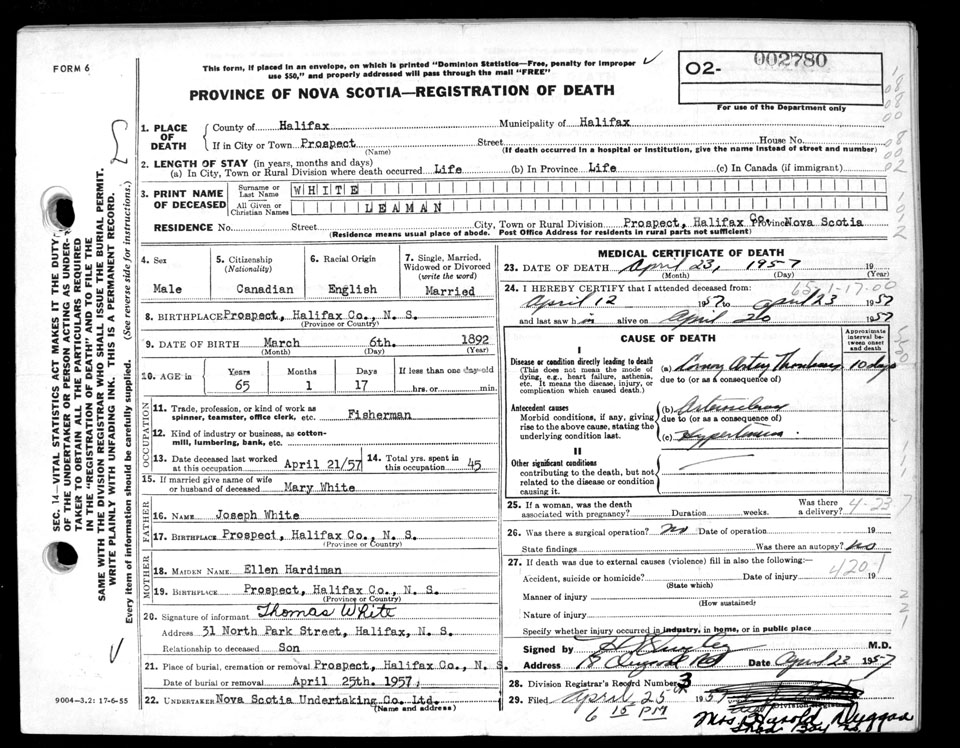 FORM 6
This form, if placed in an envelope, on which is printed "Dominion Statistics—Free, penalty for improper
use $50," and properly addressed will pass through the mail "FREE"
PROVINCE OF NOVA SCOTIA—REGISTRATION OF DEATH
02- 002780
For use of the Department only
SEC. 14—VITAL STATISTICS ACT MAKES IT THE DUTY
OF THE UNDERTAKER OR PERSON ACTING AS UNDER-
TAKER TO OBTAIN ALL THE PARTICULARS REQUIRED
IN THE "REGISTRATION OF DEATH" AND TO FILE THE
SAME WITH THE DIVISION REGISTRAR WHO SHALL ISSUE THE BURIAL PERMIT.
WRITE PLAINLY WITH UNFADING INK. THIS IS A PERMANENT RECORD.
Every item of information should be carefully supplied. (See reverse side for instructions.)
1. PLACE OF DEATH
County of Halifax Municipality of Halifax
If in City or Town Prospect Street House No.
(Name) (If death occurred in a hospital or institution, give the name instead of street and number)
2. LENGTH OF STAY (in years, months and days)
(a) In City, Town or Rural Division where death occurred Life (b) In Province Life (c) In Canada (if immigrant)
3. PRINT NAME OF DECEASED
Surname or Last Name WHITE
All Given or Christian Names LEAMAN
RESIDENCE No. Street City, Town or Rural Division Prospect, Halifax Co. Province Nova Scotia
(Residence means usual place of abode. Post Office Address for residents in rural parts not sufficient)
4. Sex
Male
5. Citizenship (Nationality)
Canadian
6. Racial Origin
English
7. Single, Married, Widowed or Divorced (write the word)
Married
8. BIRTHPLACE Prospect, Halifax Co., N. S.
(Province or Country)
9. DATE OF BIRTH March 6th. 1892
(Month) (Day) (Year)
10. AGE in Years Months Days If less than one day old
65 1 17 hrs. or min.
OCCUPATION
11. Trade, profession, or kind of work as
spinner, teamster, office clerk, etc. Fisherman
12. Kind of industry or business, as cotton-
mill, lumbering, bank, etc.
13. Date deceased last worked
at this occupation April 21/57
14. Total yrs. spent in
this occupation 45
15. If married give name of wife
or husband of deceased Mary White
FATHER
16. NAME Joseph White
17. BIRTHPLACE Prospect, Halifax Co., N. S.
(Province or Country)
MOTHER
18. MAIDEN NAME Ellen Hardiman
19. BIRTHPLACE Prospect, Halifax Co., N. S.
(Province or Country)
20. Signature of informant Thomas White
Address 31 North Park Street, Halifax, N. S.
Relationship to deceased Son
21. Place of burial, cremation or removal Prospect, Halifax Co., N. S.
Date of burial or removal April 25th. 1957,
22. UNDERTAKER Nova Scotia Undertaking Co. Ltd.
(Name and address)
9004—3.2: 17-6-55
MEDICAL CERTIFICATE OF DEATH
23. DATE OF DEATH April 23, 1957 19
(Month) (Day) (Year)
24. I HEREBY CERTIFY that I attended deceased from:
April 12 1957 to April 23 1957
and last saw h im alive on April 20 1957
CAUSE OF DEATH
Approximate interval between onset and death
I
Disease or condition directly leading to death
(This does not mean the mode of
dying, e.g., heart failure, asthenia,
etc. It means the disease, injury, or
complication which caused death.)
(a) Artery 10 days
due to (or as a consequence of)
Antecedent causes
Morbid conditions, if any, giving
rise to the above cause, stating the
underlying condition last.
(b)
due to (or as a consequence of)
(c) Hypertension
II
Other significant conditions
contributing to the death, but not
related to the disease or condition
causing it.
25. If a woman, was the death
associated with pregnancy? Duration weeks. Was there a delivery?
4-23-7
26. Was there a surgical operation? No Date of operation 19
State findings Was there an autopsy? No
27. If death was due to external causes (violence) fill in also the following:—
420-1
Accident, suicide or homicide? Date of injury 19
(State which)
Manner of injury
(How sustained)
Nature of injury
Specify whether injury occurred in industry, in home, or in public place
Signed by M.D.
Address Date April 23 1957
28. Division Registrar's Record Number 3
29. Filed April 25 1957
6 15 PM
Division Registrar
Mrs. Harold Duggan
Shad Bay